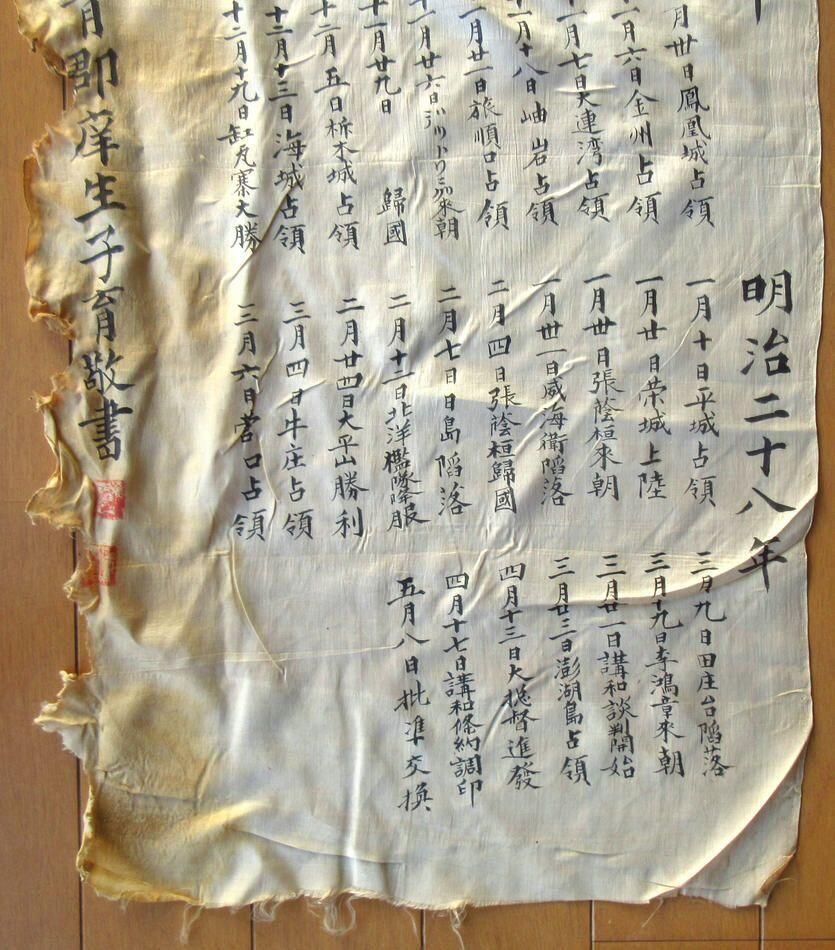 月卅日鳳凰城占領
一月六日金州占領
十一月七日大連湾占領
十一月十八日岫岩占領
一月廿一日旅順口占領
十一月廿六日デットリンニ来朝
十一月廿九日 歸國
十二月五日析木城占領
十二月十三日海城占領
十二月十九日缸瓦寨大勝
明治二十八年
一月十日平城占領
一月廿日栄城上陸
一月卅日張蔭桓来朝
一月卅一日威海衛陷落
二月四日張蔭桓歸國
二月七日日島陷落
二月十二日北洋艦隊降服
二月廿四日大平山勝利
三月四日牛庄占領
三月六日営口占領
三月九日田庄台陷落
三月十九日李鴻章來朝
三月廿一日講和談判開始
三月廿三日澎湖島占領
四月十三日大摠督進發
四月十七日講和條約調印
五月八日批準交換
郡庠生子育敬書